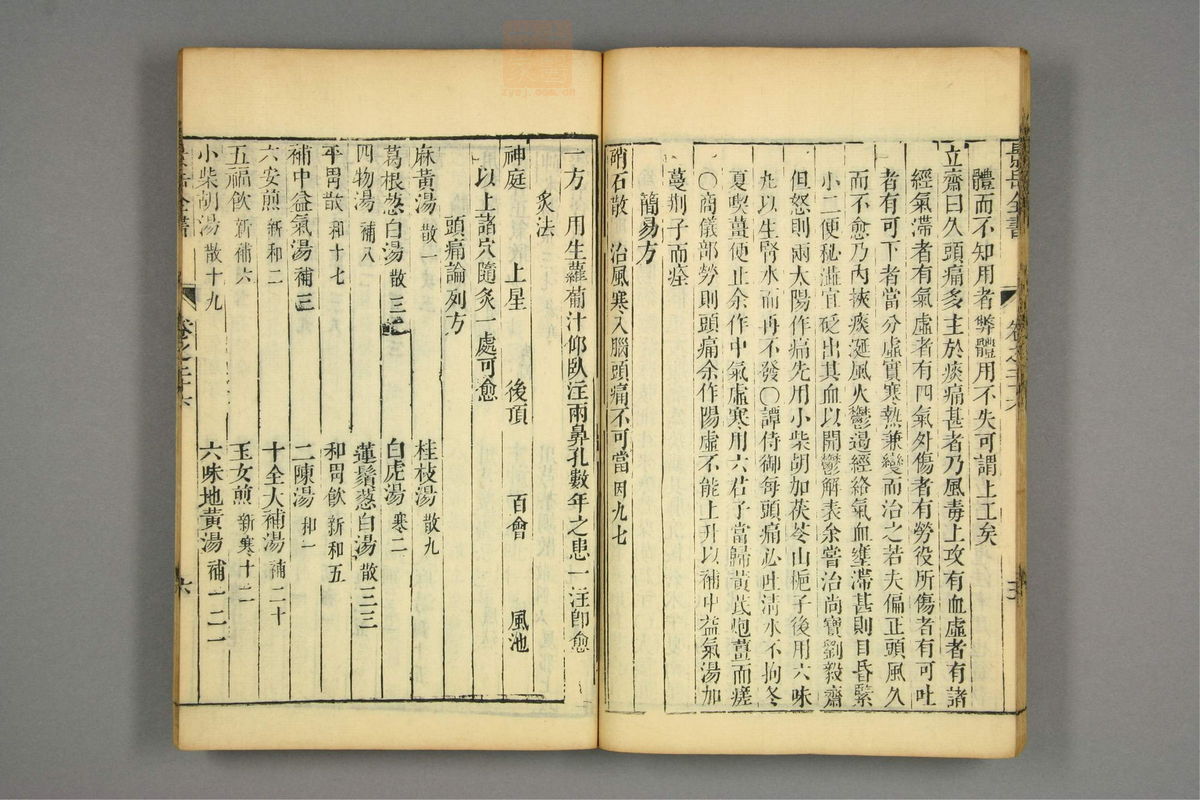 景岳全書
卷之二十六
體而不知用者弊體用不失可謂上工矣
立齋曰久頭痛多主於痰痛甚者乃風毒上攻有血虛者有諸
經氣滯者有氣虛者有四氣外傷者有勞役所傷者有可吐
者有可下者當分虛實寒熱兼變而治之若夫偏正頭風久
而不愈乃內挾痰涎風火鬱遏經絡氣血壅滯甚則目昏緊
小二便秘澁宜砭出其血以開鬱解表余嘗治尚寶劉毅齋
但怒則兩太陽作痛先用小柴胡加茯苓山梔子後用六味
丸以生腎水而再不發○譚侍御每頭痛必吐清水不拘冬
夏喫薑便止余作中氣虛寒用六君子當歸黃芪炮薑而瘥
○商儀部勞則頭痛余作陽虛不能上升以補中益氣湯加
蔓荆子而痊
簡易方
硝石散 治風寒入腦頭痛不可當 因九七
一方 用生蘿蔔汁仰臥注兩鼻孔數年之患一注卽愈
灸法
神庭 上星 後頂 百會 風池
以上諸穴隨灸一處可愈
頭痛論列方
麻黃湯 散一 桂枝湯 散九
葛根葱白湯 散三二 白虎湯 寒二
四物湯 補八 蓮鬚葱白湯 散三三
平胃散 和十七 和胃飲 新和五
補中益氣湯 補三 二陳湯 和一
六安煎 新和二 十全大補湯 補二十
五福飲 新補六 玉女煎 新寒十二
小柴胡湯 散十九 六味地黃湯 補一二一
景岳全書
卷之二十六
六